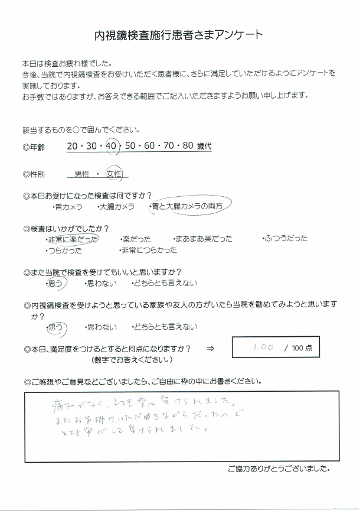 内視鏡検査施行患者さまアンケート
本日は検査お疲れ様でした。
今後、当院で内視鏡検査をお受けいただく患者様に、さらに満足していただけるようにアンケートを
実施しております。
お手数ではありますが、お答えできる範囲でご記入いただきますようお願い申し上げます。
該当するものを○で囲んでください。
◎年齢 20・30・40・50・60・70・80 歳代
◎性別 男性 ・ 女性
◎本日お受けになった検査は何ですか?
・胃カメラ ・大腸カメラ ・胃と大腸カメラの両方
◎検査はいかがでしたか?
・非常に楽だった ・楽だった ・まあまあ楽だった ・ふつうだった
・つらかった ・非常につらかった
◎また当院で検査を受けてもいいと思いますか?
・思う ・思わない ・どちらとも言えない
◎内視鏡検査を受けようと思っている家族や友人の方がいたら当院を勧めてみようと思います
か?
・思う ・思わない ・どちらとも言えない
◎本日、満足度をつけるとすると何点になりますか? ⇒ 100 /100点
(数字でお答えください。)
◎ご感想やご意見などございましたら、ご自由に枠の中にお書きください。
痛みがなく、とても楽に受けられました。
またお声掛けいただきながらだったので
とても安心して受けられました。
ご協力ありがとうございました。